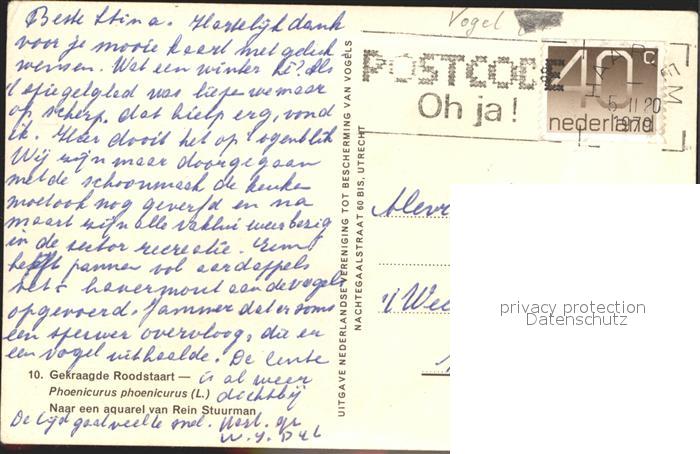 Beste Stina. Hartelijk dank
voor je mooie kaart met geluk
wensen. Wat een winter hè? Als
't spiegelglad was liepen we maar
op scherp, dat hielp erg, vond
ik. Hier dooit het op 't ogenblik
Wij zijn maar doorgegaan
met de schoonmaak de keuken
moet ook nog geverfd en na
maart zijn alle vaklui weer bezig
in de sector recreatie.
heeft pannen vol aardappels
havermout aan de vogels
opgevoerd. Jammer dat er soms
een sperwer overvloog, die er
een vogel uithaalde. De lente
is al weer
dichtbij
De tijd gaat veel te snel. Hart. gr
10. Gekraagde Roodstaart —
Phoenicurus phoenicurus (L.)
Naar een aquarel van Rein Stuurman
UITGAVE NEDERLANDSE VERENIGING TOT BESCHERMING VAN VOGELS
NACHTEGAALSTRAAT 60 BIS, UTRECHT
Vogel
POSTCODE
Oh ja!
HAARLEM
5 II 20
1979
40 c
nederland
Mevr
't Wee
privacy protection
Datenschutz